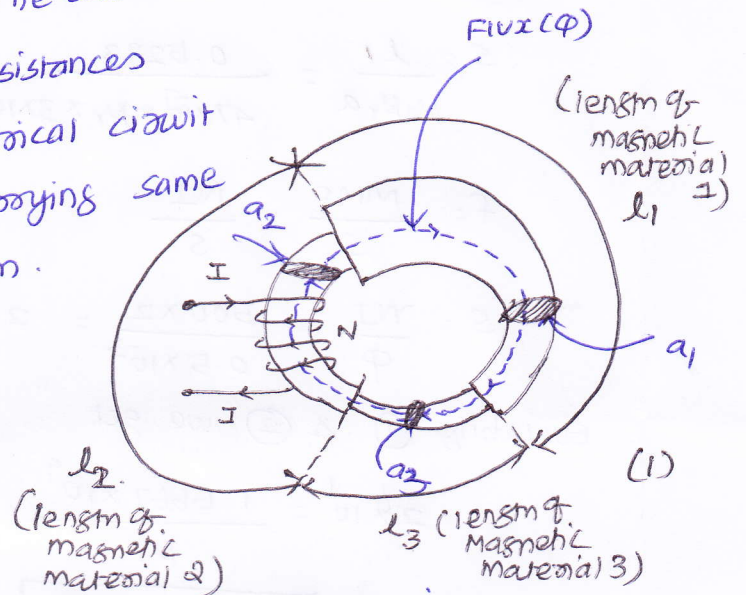 sistances
rical circuit
rrying same
n.
Flux (φ)
(length of
magnetic
material
1)
l1
a2
I
N
I
a1
a3
(1)
l2
(length of
magnetic
material 2)
l3 (length of
Magnetic
material 3)